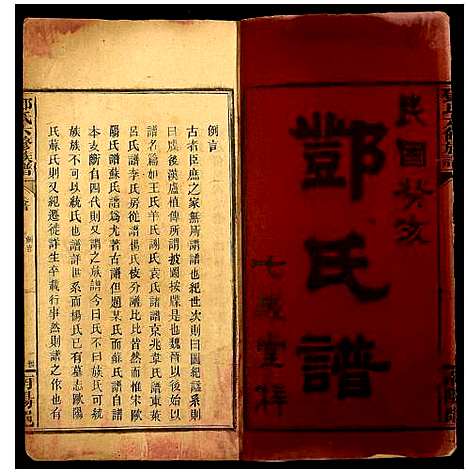 民國癸亥
鄷氏譜
七義堂梓
例言
古者臣庶之家無所謂譜也紀世次則曰圖紀謚系則
曰成後漢盧植傳所謂披圖按牒是也魏晉以下始以
譜名篇如王氏羊氏謝氏袁氏諸譜京兆韋氏譜東萊
呂氏譜李氏房從譜楊氏枝分譜比比皆然而宋歐
陽氏譜蘇氏譜為尤著古譜但題某氏而蘇氏譜自謂
本支斷自四代則又謂之族譜今曰氏不曰族氏可以統
族不可以統氏也譜詳世系而楊氏已有墓志歐陽
氏蘇氏則又紀遷徙詳生卒載行事然則譜之作也有
氏六修族譜
例言
南陽堂